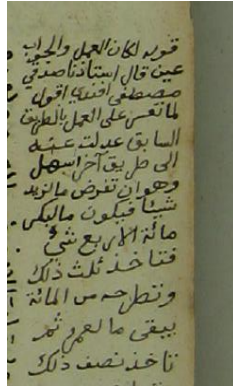 قوله لكان العمل والجواب
عين قال استاذنا صدقي
مصطفى افندي اقول
لما تعسر على العمل بالطريق
السابق عدلت عنه
الى طريق آخر اسهل
وهو ان تفرض ما لزيد
شيئا فيكون ما لبكر
مائة الا ربع شئ
فتاخذ ثلث ذلك
وتطرحه من المائة
يبقى ما لعمرو ثم
تاخذ نصف ذلك